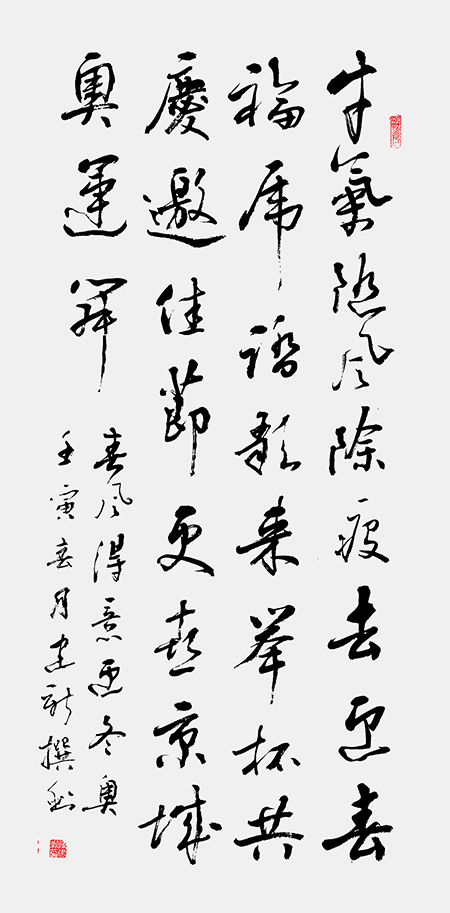 牛氣隨風除疫去迎春
福虎踏歌来舉杯共
慶邀佳節更喜京城
奥運開
春風得意迎冬奥
壬寅春月建新撰